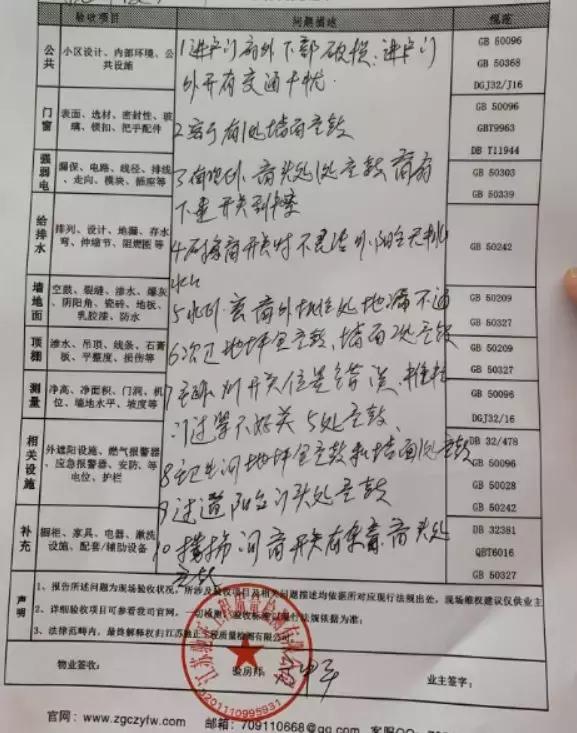 验收项目 问题描述 规范
公共 小区设计、内部环境、公共设施
GB 50096
GB 50368
DGJ32/J16
1进户门扇外下部破损、进户门
外开有交通干扰.
门窗 表面、选材、密封性、玻璃、锁扣、把手配件
GB 50096
GBT9963
DB T11944
2客厅有1处墙面空鼓
强弱电 漏保、电路、线径、排线、走向、模块、插座等
GB 50303
GB 50339
3有 次卧 窗头处1处空鼓 窗扇
下 开关
给排水 排列、设计、地漏、存水弯、伸缩节、阻燃圈 等
GB 50242
4 窗开关时不灵活 阳台无排
水口
墙地面 空鼓、裂缝、渗水、爆灰、阴阳角、瓷砖、地板、乳胶漆、防水
GB 50209
GB 50327
5 窗外 处地漏不通
顶棚 渗水、吊顶、线条、石膏板、平整度、损伤等
GB 50209
GB 50327
6次卫地坪全空鼓、墙面2处空鼓
测量 净高、净面积、门洞、机位、墙地水平、坡度等
GB 50096
DGJ32/16
7主卧 开关位置错误、推拉
门过紧不好关 5处空鼓、
相关设施 外遮阳设施、燃气报警器、应急报警器、安防、等电位、护栏
DB 32/478
GB 50096
GB 50028
GB 50242
8主卫生间地坪全空鼓和墙面1处空鼓
9过道阳台门头处空鼓
补充 橱柜、家具、电器、漱洗设施、配套/辅助设备
DB 32381
QBT6016
GB 50327
10 间窗开关有杂音 窗头处
空鼓
声明
1、报告所述问题为现场验收状况，所涉及验收项目及相关问题描述均依据所对应现行法规出处，现场维权建议仅供业主
2、详细验收项目可参看我司官网，一切检测、验收标准以现行法规依据为准；
3、法律范畴内，最终解释权归江苏 正工程质量检测有限公司。
物业签收： 验房师： 业主签字：
3201110995931
官网：www.zgczyfw.com 邮箱：709110668@qq.com 客服QQ：